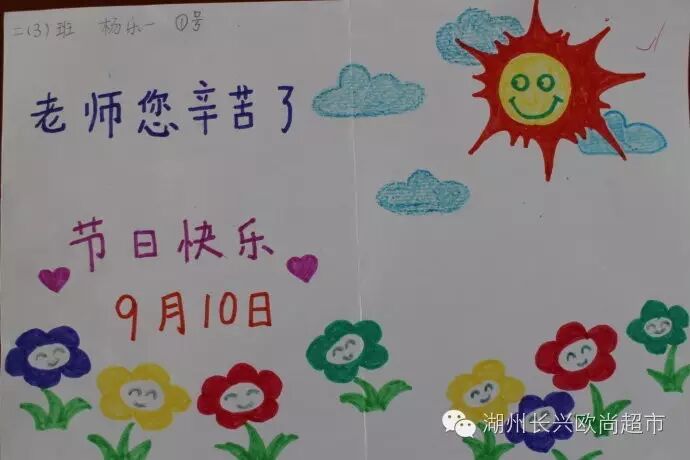 二(3)班 杨乐一 ①号
老师您辛苦了
节日快乐
9月10日
湖州长兴欧尚超市